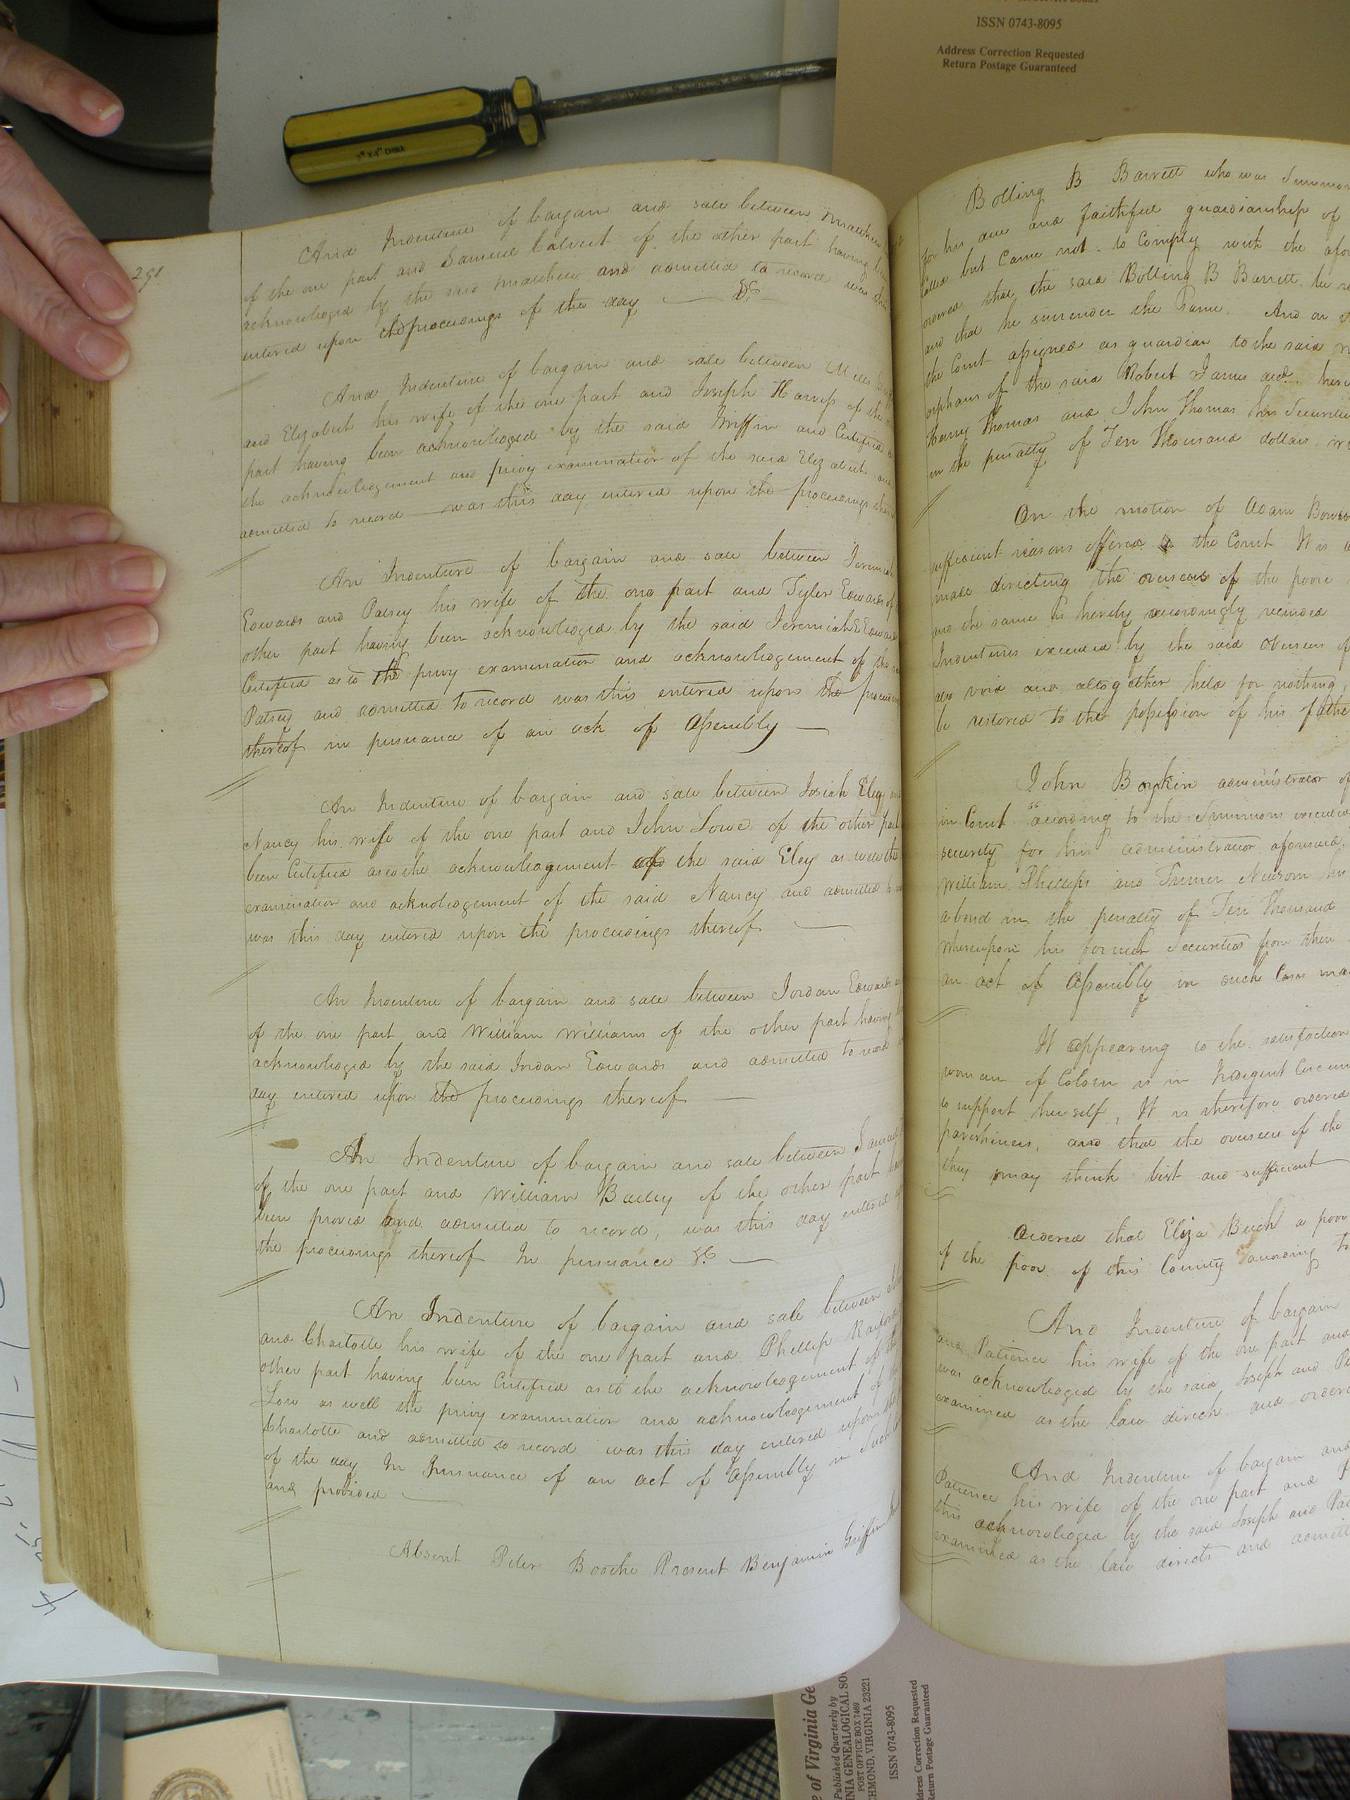 ISSN 0743-8095
Address Correction Requested
Return Postage Guaranteed
298
And Indenture of bargain and sale between Matthew
of the one part and Samuel Calvert of the other part having been
acknowledged by the said Matthew and admitted to record was this
entered upon the proceedings of the day &c
And Indenture of bargain and sale between
and Elizabeth his wife of the one part and Joseph Harris of the
part having been acknowledged by the said Griffin and Certified
the acknowledgement and privy examination of the said Elizabeth and
admitted to record was this day entered upon the proceedings
An Indenture of bargain and sale between Jeremiah
Edwards and Patsey his wife of the one part and Tyler Edwards of
other part having been acknowledged by the said Jeremiah Edwards
Certified as to the privy examination and acknowledgement of the
Patsey and admitted to record was this entered upon the
thereof in pursuance of an ack of Assembly
An Indenture of bargain and sale between Josiah Eley
Nancy his wife of the one part and John Lowe of the other part
been Certified as to the acknowleagement of the said Eley as well the
examination and acknolegement of the said Nancy and admitted
was this day entered upon the proceedings thereof
An Indenture of bargain and sale between Jordan Edwards
of the one part and William Williams of the other part having
acknowledged by the said Jordan Edwards and admitted to record
day entered upon the proceedings thereof
An Indenture of bargain and sale between
of the one part and William Bailey of the other part
been proved and admitted to record, was this day entered
the proceedings thereof In pursuance &c
An Indenture of bargain and sale between
and Charlotte his wife of the one part and Phillip
other part having been Certified as to the acknowledgement of the
Low as well the privy examination and acknowledgement of
Charlotte and admitted to record was this day entered upon
of the day In Pursuance of an act of Assembly in such
and provided
Absent Peter Boothe Present Benjamin Griffin
Bolling B Barrett who was
for his due and faithful guardianship of
Called but Came not to Comply with the
ordered that the said Bolling B Barrett be
and that he surrender the Same. And on
the Court assigned as guardian to the said
orphans of the said Robert James decd.
Henry Thomas and John Thomas his Securities
in the penalty of Ten thousand dollars
On the motion of Adam
sufficient reasons offered to the Court It is
made directing the overseers of the poor
and the same is hereby accordingly recinded
Indentures executed by the said Overseers of
are void and altogether held for nothing
be restored to the possession of his
John Boykin administrator of
in Court according to the Summons
security for his administration aforesaid
William Phillips and Turner Newsom his
a bond in the penalty of Ten thousand
whereupon his former Securities from
an act of Assembly in such Case
It appearing to the satisfaction
woman of Colour is in Indigent
to support herself, It is therefore ordered
parishiners, and that the overseers of the
they may think best and sufficient
Ordered that Eliza Beech a poor
of the poor of this County according to
And Indenture of bargain
and Patience his wife of the one part and
was acknowledged by the said Joseph and
examined as the law directs and
And Indenture of bargain and
Patience his wife of the one part and
this acknowledged by the said Joseph and
examined as the law directs and
of Virginia
Published Quarterly by
GENEALOGICAL
POST OFFICE BOX 7469
VIRGINIA 23221
ISSN 0743-8095
Address Correction Requested
Return Postage Guaranteed